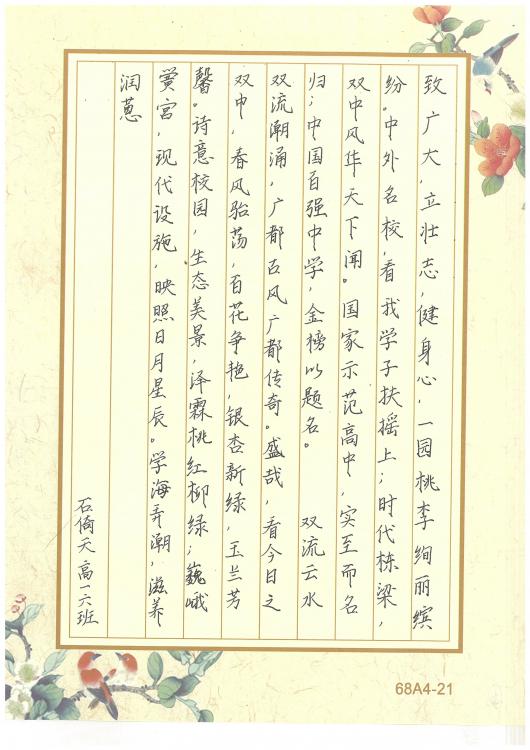 致广大，立壮志，健身心，一园桃李绚丽缤
纷。中外名校，看我学子扶摇上；时代栋梁，
双中风华天下闻。国家示范高中，实至而名
归；中国百强中学，金榜以题名。 双流云水
双流潮涌，广都古风广都传奇。盛哉，看今日之
双中，春风骀荡，百花争艳，银杏新绿，玉兰芳
馨。诗意校园，生态美景，泽霖桃红柳绿；巍峨
黉宫，现代设施，映照日月星辰。学海弄潮，滋养
润蕙
石倚天高一六班
68A4-21